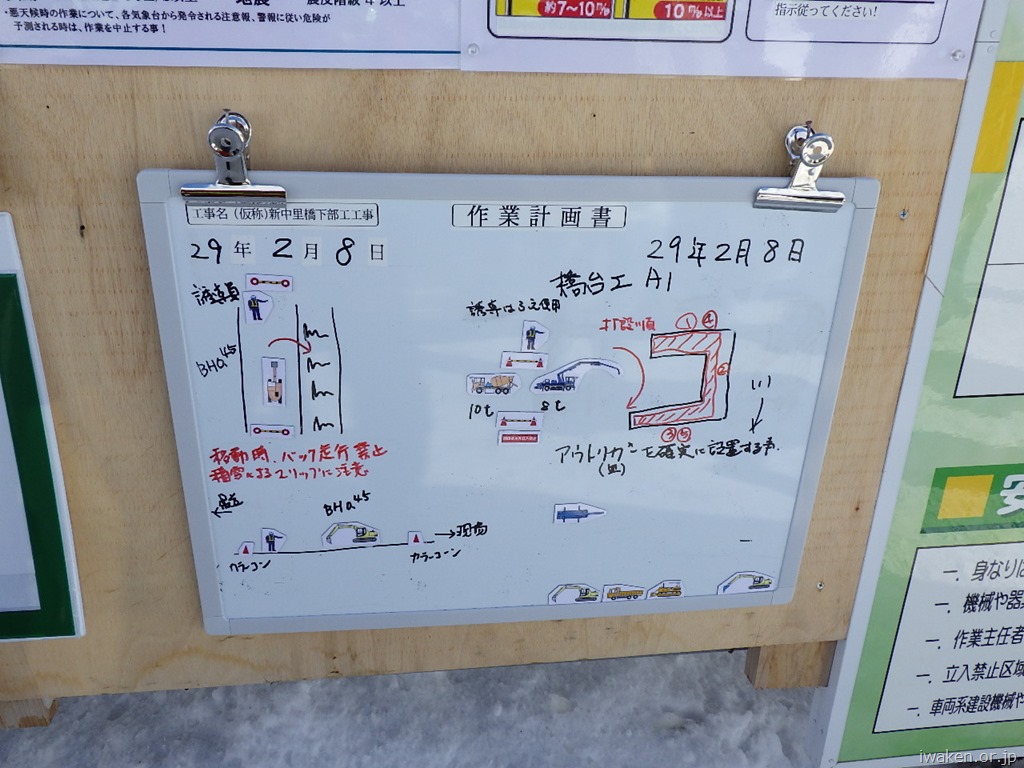 ・悪天候時の作業について、各気象台から発令される注意報、警報に従い危険が
予測される時は、作業を中止する事！
地震
約7～10m/s
10m/s以上
指示従ってください!
工事名（仮称）新中里橋下部工工事
作業計画書
29年 2月 8日
29年2月8日
橋台工 A1
誘導員
BHa45
移動用、バック走行禁止
積雪によるスリップに注意
BHa45
→現場
カラーコーン
カラーコーン
打設順
①④
②
③⑤
10t
8t
アウトリガーを確実に設置する事.
安
一. 身なりは
一. 機械や器
一. 作業主任者
一. 立入禁止区域
一. 車両系建設機械や
iwaken.or.jp